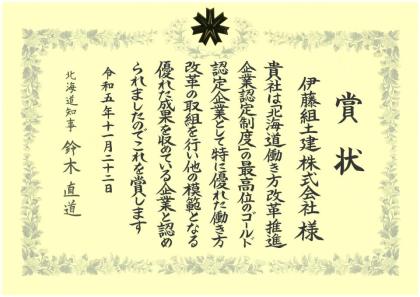 賞状
伊藤組土建株式会社 様
貴社は「北海道働き方改革推進
企業認定制度」の最高位のゴールド
認定企業として特に優れた働き方
改革の取組を行い他の模範となる
優れた成果を収めている企業と認め
られましたのでこれを賞します
令和五年十一月二十二日
北海道知事 鈴木直道